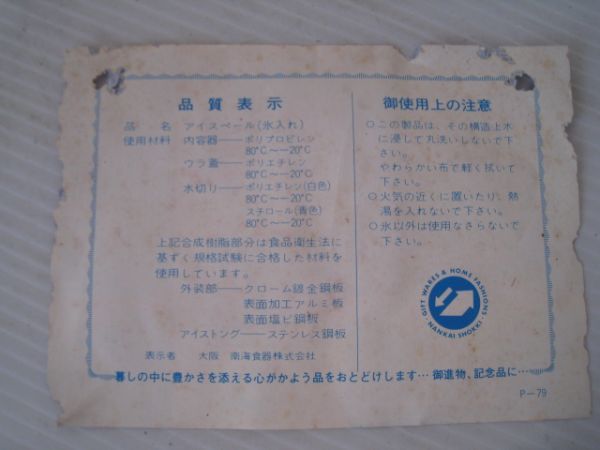 品質表示
品　名　アイスペール(氷入れ)
使用材料　内容器――ポリプロピレン
80°C～－20°C
ウラ蓋――ポリエチレン
80°C～－20°C
水切り――ポリエチレン(白色)
80°C～－20°C
スチロール(青色)
80°C～－20°C
上記合成樹脂部分は食品衛生法に
基ずく規格試験に合格した材料を
使用しています。
外装部――クローム鍍金鋼板
表面加工アルミ板
表面塩ビ鋼板
アイストング――ステンレス鋼板
表示者　大阪　南海食器株式会社
御使用上の注意
○この製品は、その構造上水
に浸して丸洗いしないで下
さい。
やわらかい布で軽く拭いて
下さい。
○火気の近くに置いたり、熱
湯を入れないで下さい。
○氷以外は使用なさらないで
下さい。
GIFT WARES & HOME FASHIONS
NANKAI SHOKKI
暮しの中に豊かさを添える心がかよう品をおとどけします…御進物、記念品に…
P－79